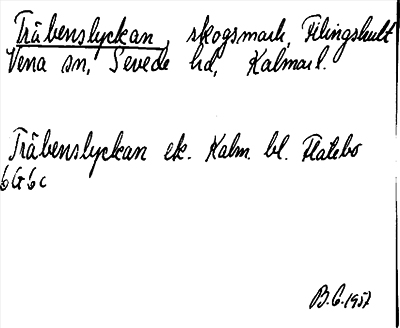 Träbenslyckan, skogsmark, Filingshult
Vena sn, Sevede hd, Kalmar l.
Träbenslyckan ek. Kalm. bl. Flatebo
6G6c
B.G. 1957